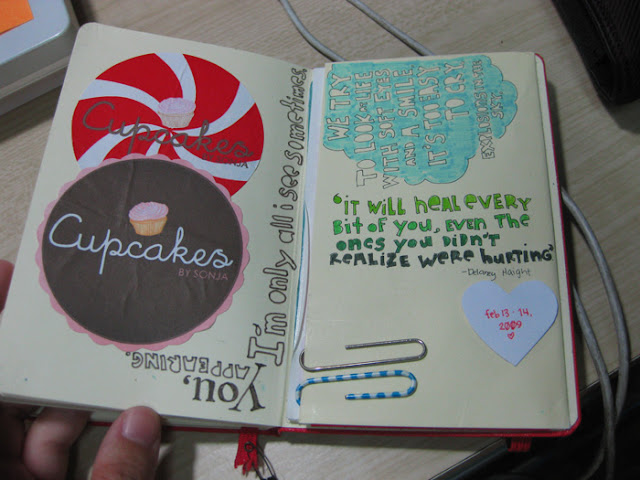 Cupcakes
Cupcakes
BY SONJA
I'm only all i see sometimes.
You,
APPEARING.
WE TRY
TO LOOK AT LIFE
WITH SOFT EYES
AND A SMILE.
IT'S TOO EASY
TO CRY.
EXPLOSIONS IN THE
SKY
"it will heal every
bit of you, even the
ones you didn't
realize were hurting"
-Delaney Haight
feb 13-14,
2009